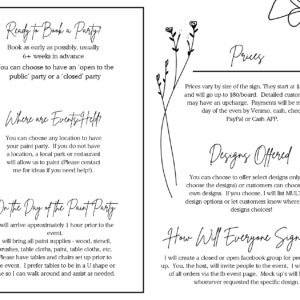 Ready to Book a Party?
Book as early as possible, usually
6+ weeks in advance
You can choose to have an 'open to the
public' party or a 'closed' party
Where are Events Held?
You can choose any location to have
your paint party. If you do not have
a location, a local park or restaurant
will allow us to paint (Please contact
me for ideas if you need help!).
On the Day of the Paint Party
will arrive approximately 1 hour prior to the
event.
will bring all paint supplies - wood, stensil,
brushes, table cloths, paint, table cloths, etc.
Please have tables and chairs set up prior to
the event. I prefer tables to be in a U shape or
so I can walk around and assist as needed.
Prices
Prices vary by size of the sign. They start at $
and will go up to $80/board. Detailed custom
may have an upcharge. Payments will be m
day of the even by Venmo, cash, check
PayPal or Cash APP.
Designs Offered
You can choose to offer select designs only
choose the designs) or customers can choose
own designs. If you choose, I will list MULT
design options or let customers know where
designs choices!
How Will Everyone Sign
I will create a closed or open facebook group for pe
up. You, the host, will invite people to the event. I w
of all orders via the fb event page. Mock up's will b
whomever requested